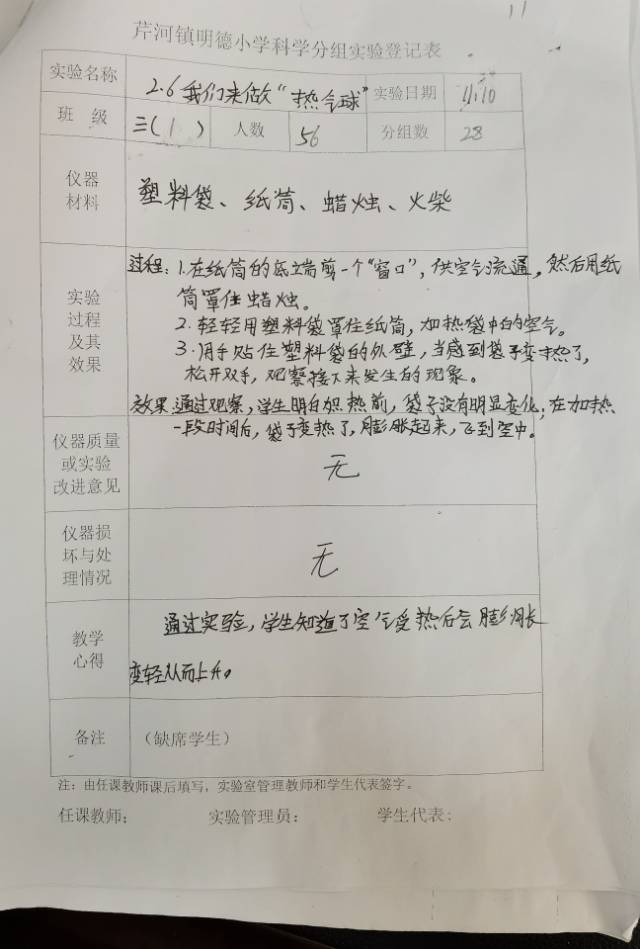 11
芹河镇明德小学科学分组实验登记表
实验名称 2.6我们来做“热气球” 实验日期 11.10
班 级 三(1) 人数 56 分组数 28
仪器
材料
塑料袋、纸筒、蜡烛、火柴
实验
过程
及其
效果
过程:1.在纸筒的底端剪一个“窗口”,供空气流通,然后用纸
筒罩住蜡烛。
2.轻轻用塑料袋罩住纸筒,加热袋中的空气。
3.用手贴住塑料袋的外壁,当感到袋子变热了,
松开双手,观察接下来发生的现象。
效果:通过观察,学生明白加热前,袋子没有明显变化;在加热
一段时间后,袋子变热了,膨胀起来,飞到空中。
仪器质量
或实验
改进意见
无
仪器损
坏与处
理情况
无
教学
心得
通过实验,学生知道了空气受热后会膨胀
变轻从而上升。
备注 (缺席学生)
注:由任课教师课后填写,实验室管理教师和学生代表签字。
任课教师: 实验管理员: 学生代表: